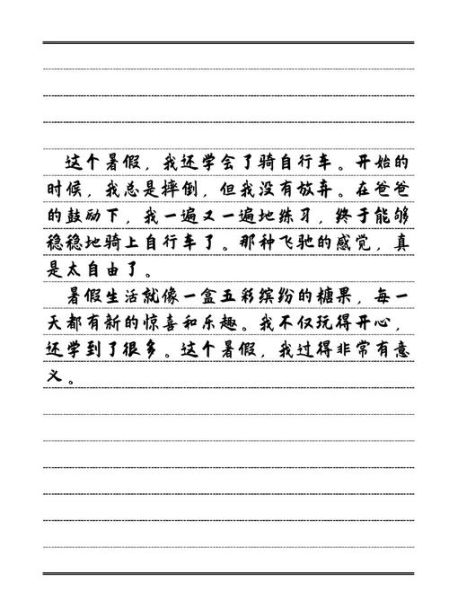 这个暑假，我还学会了骑自行车。开始的
时候，我总是摔倒，但我没有放弃。在爸爸
的鼓励下，我一遍又一遍地练习，终于能够
稳稳地骑上自行车了。那种飞驰的感觉，真
是太自由了。
暑假生活就像一盒五彩缤纷的糖果，每一
天都有新的惊喜和乐趣。我不仅玩得开心，
还学到了很多。这个暑假，我过得非常有意
义。